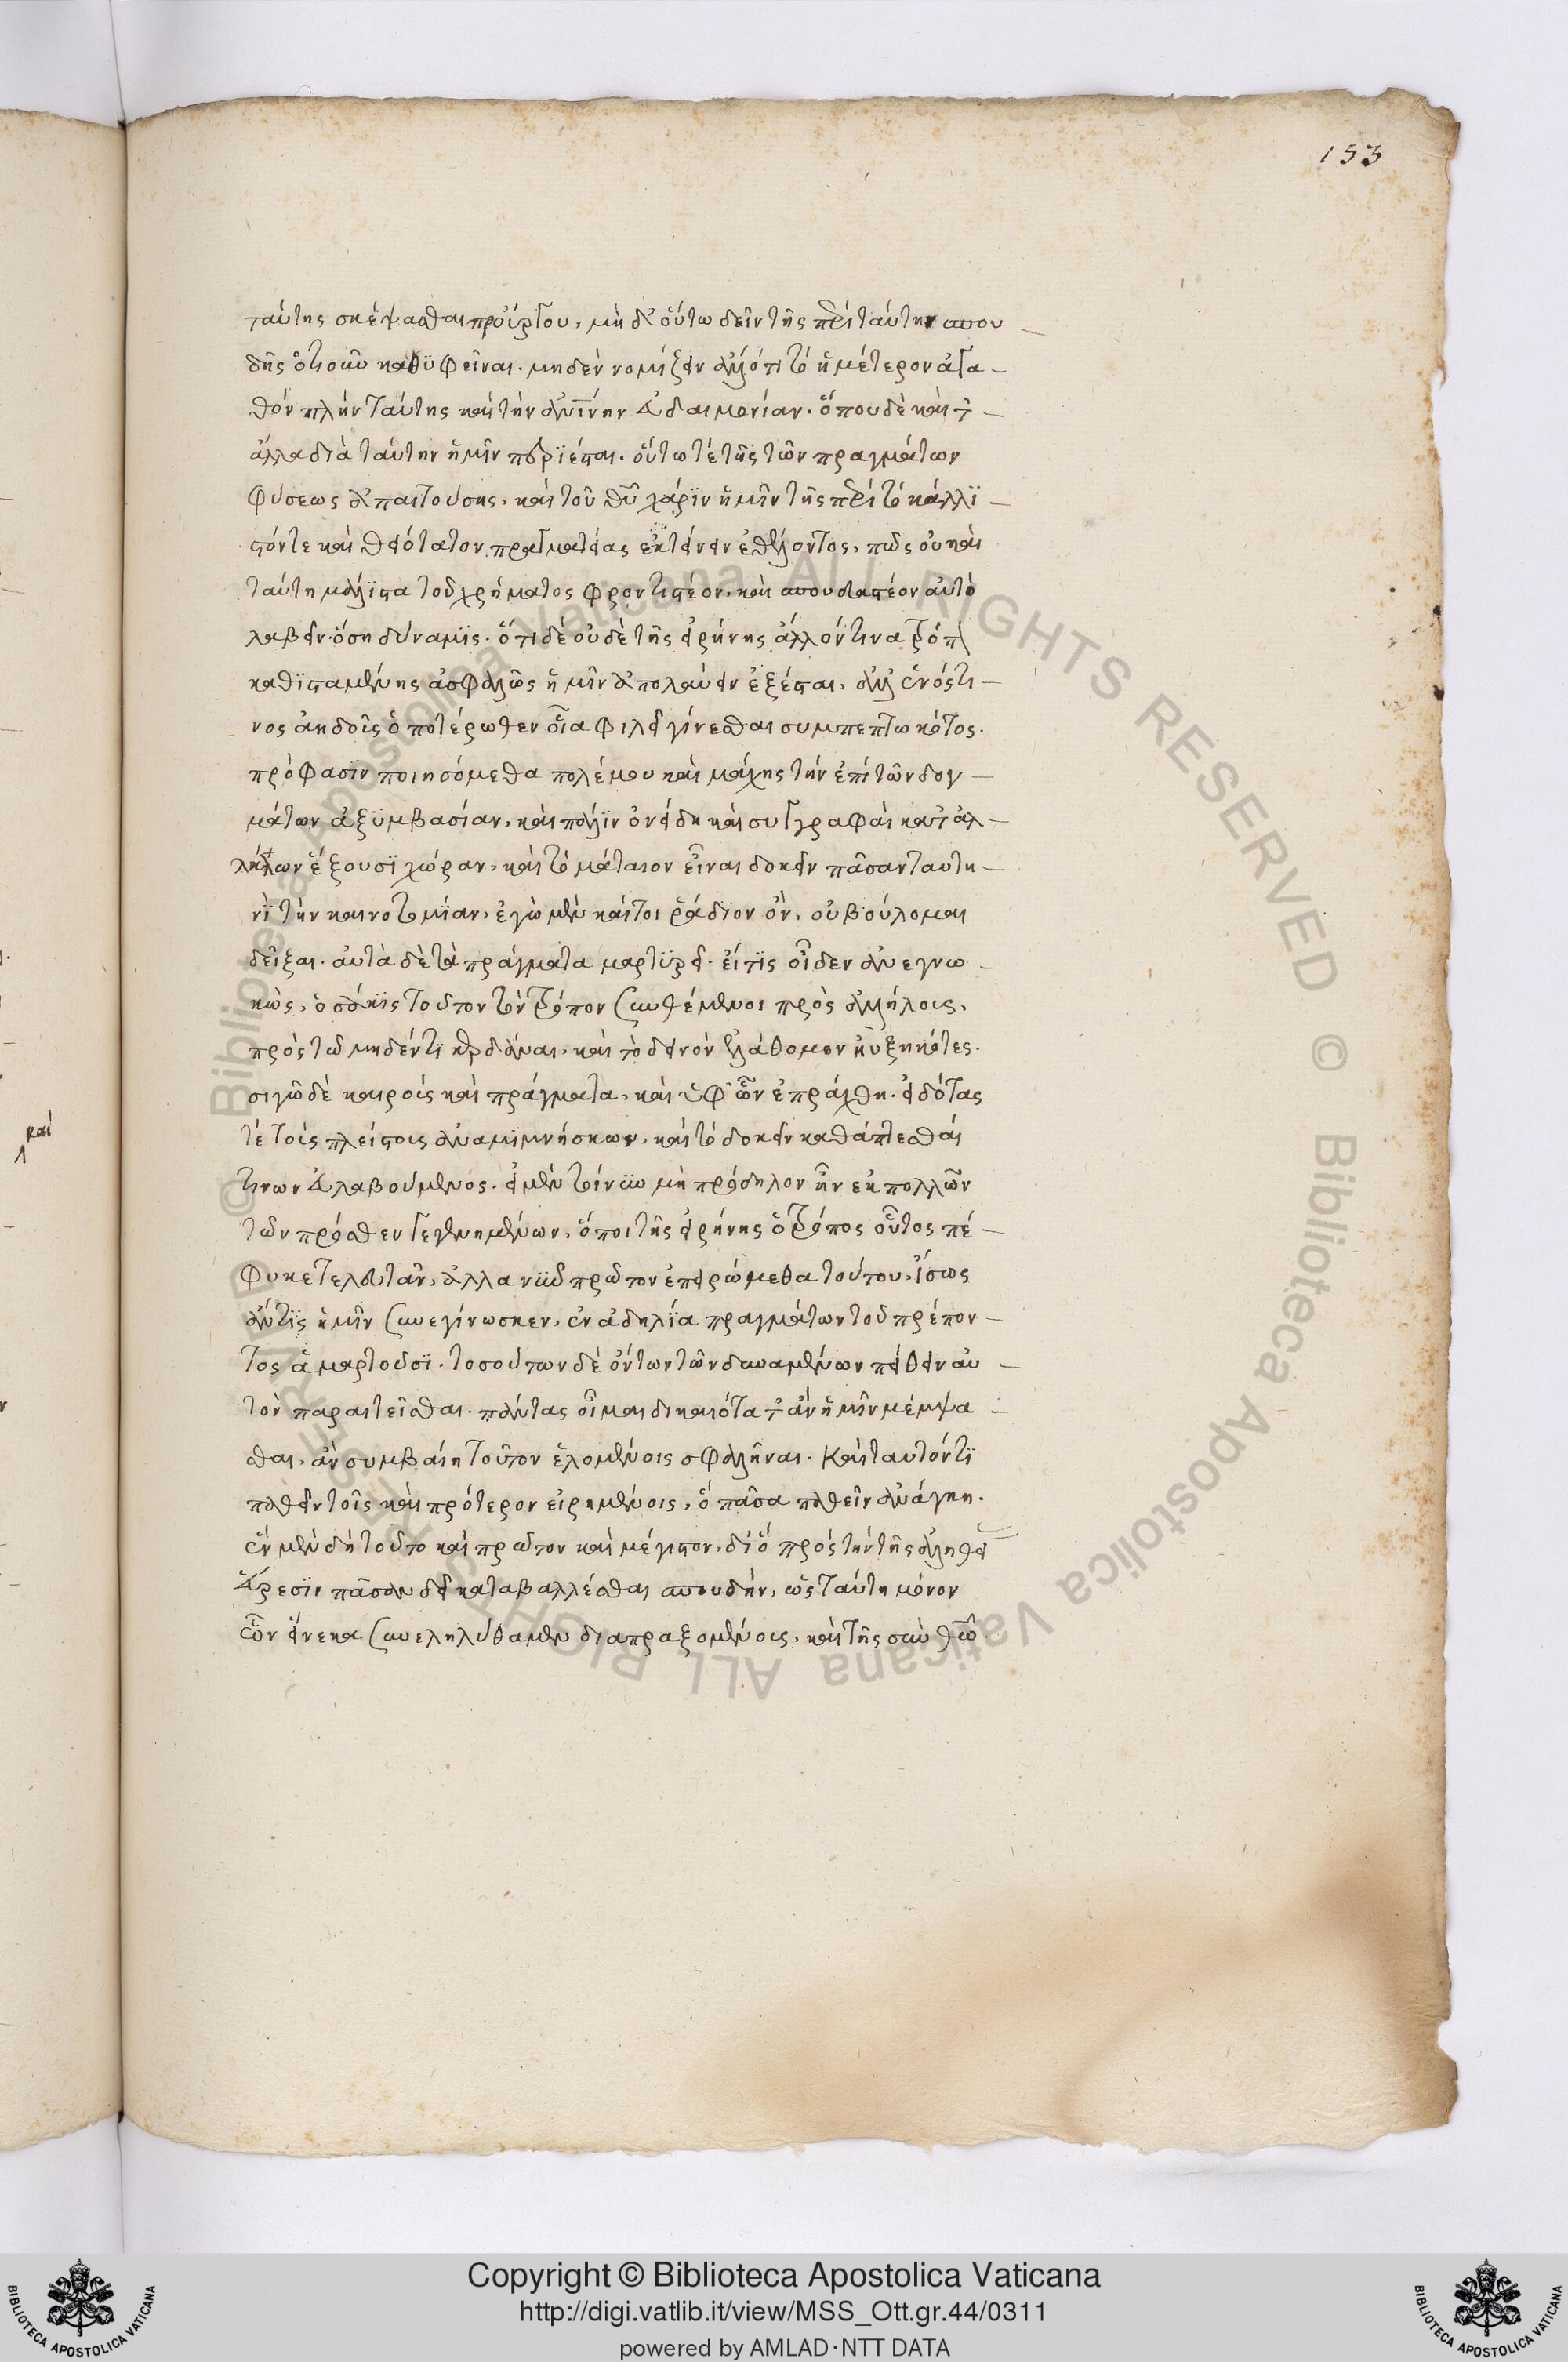 153
ταύτης σκέψασθαι προὔργου, μὴ δ' οὕτω δεῖν τῆς περὶ ταύτην σπου
δῆς ὁτιοῦν καθϋφεῖναι. μηδὲν νομίζειν ἀλλότι τὸ ἡμέτερον ἀγα–
θὸν πλὴν ταύτης καὶ τὴν ἀντίνην εὐδαιμονίαν. ὅπου δὲ καὶ τ –
ἄλλα διὰ ταύτην ἡμῖν περϊέσται. οὕτω τὲ τῆς τῶν πραγμάτων
φύσεως ἀπαιτούσης, καὶ τοῦ θυ χάρϊν ἡμῖν τῆς περὶ τὸ κάλλϊ –
στόν τε καὶ θειότατον πραγματείας ἐκτείνειν ἐθέλοντος, πῶς οὐ καὶ
ταύτη μάλϊστα τοῦ χρήματος φροντιστέον, καὶ σπουδαστέον αὐτὸ
λαβεῖν ὅση δύναμϊς. ὅτι δὲ οὐδὲ τῆς εἰρήνης ἄλλόν τινα τρόπ
καθϊσταμένης ἀσφαλῶς ἡμῖν ἀπολαύειν ἐξέσται, ἀλλ' ἑνός τι –
νος ἀηδοῖς ὁποτέρωθεν οἷα φιλεῖ γίνεσθαι συμπεπτωκότος.
πρόφασϊν ποιησόμεθα πολέμου καὶ μάχης τὴν ἐπὶ τῶν δογ –
μάτων ἀξϋμβασίαν, καὶ πάλϊν ὀνείδη καὶ συγγραφαὶ κατ' ἀλ –
λήλων ἕξουσϊ χώραν, καὶ τὸ μάταιον εἶναι δοκεῖν πᾶσαν ταυτη –
νῒ τὴν καινοτομίαν, ἐγὼ μὲν καίτοι ῥάδϊον ὂν, οὐ βούλομαι
δεῖξαι. αὐτὰ δὲ τὰ πράγματα μαρτϋρεῖ. εἴ τϊς οἶδεν ἀνεγνω –
κὼς, ὁσάκϊς τοῦτον τὸν τρόπον συνθέμενοι πρὸς ἀλλήλοις,
πρὸς τῶ μηδέν τϊ κερδᾶναι, καὶ τὸ δεινὸν ἐλάθομεν ηὐξηκότες.
σιγῶ δὲ καιροὶς καὶ πράγματα, καὶ ὑφ' ὧν ἐπράχθη. εἰδότας
τὲ τοὶς πλείστοις ἀναμϊμνήσκων, καὶ τὸ δοκεῖν καθάπτεσθαί
τινων εὐλαβούμενος. εἰ μὲν τοίνϋν μὴ πρόδηλον ἦν ἐκ πολλῶν
τῶν πρόσθεν γεγενημένων, ὅποι τῆς εἰρήνης ὁ τρόπος οὗτος πέ –
φυκε τελευτᾶν, ἀλλα νϋν πρῶτον ἐπειρώμεθα τούτου, ἴσως
ἄν τϊς ἡμῖν συνεγίνωσκεν, ἐν ἀδηλία πραγμάτων τοῦ πρέπον –
τος ἁμαρτοῦσϊ. τοσούτων δὲ ὄντων τῶν δυναμένων πείθειν αὐ –
τὸν παραιτεῖσθαι. πάντας οἶμαι δικαιότατ' ἂν ἡμῖν μέμψα –
σθαι, ἂν συμβαίη τοῦτον ἑλομένοις σφαλῆναι. Καὶ ταυτόν τϊ
παθεῖν τοῖς καὶ πρότερον εἰρημένοις, ὃ πᾶσα παθεῖν ἀνάγκη.
ἓν μὲν δὴ τοῦτο καὶ πρωτον καὶ μέγιστον, δϊ ὃ πρὸς τὴν τῆς ἀληθεί
εὕρεσϊν πᾶσαν δεῖ καταβαλλέσθαι σπουδὴν, ὡς ταύτη μόνον
ὧν εἵνεκα συνεληλύθαμεν διαπραξομένοις, καὶ τῆς σὺν θῶ
καὶ
Copyright © Biblioteca Apostolica Vaticana
http://digi.vatlib.it/view/MSS_Ott.gr.44/0311
powered by AMLAD·NTT DATA